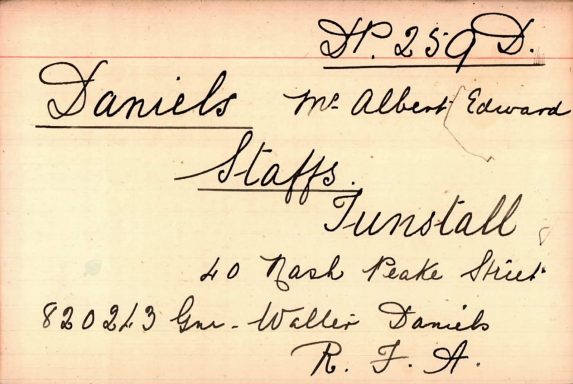 DP. 259 D.
Daniels Mr Albert Edward
Staffs.
Tunstall
40 Nash Peake Street
820243 Gnr. Walter Daniels
R. F. A.